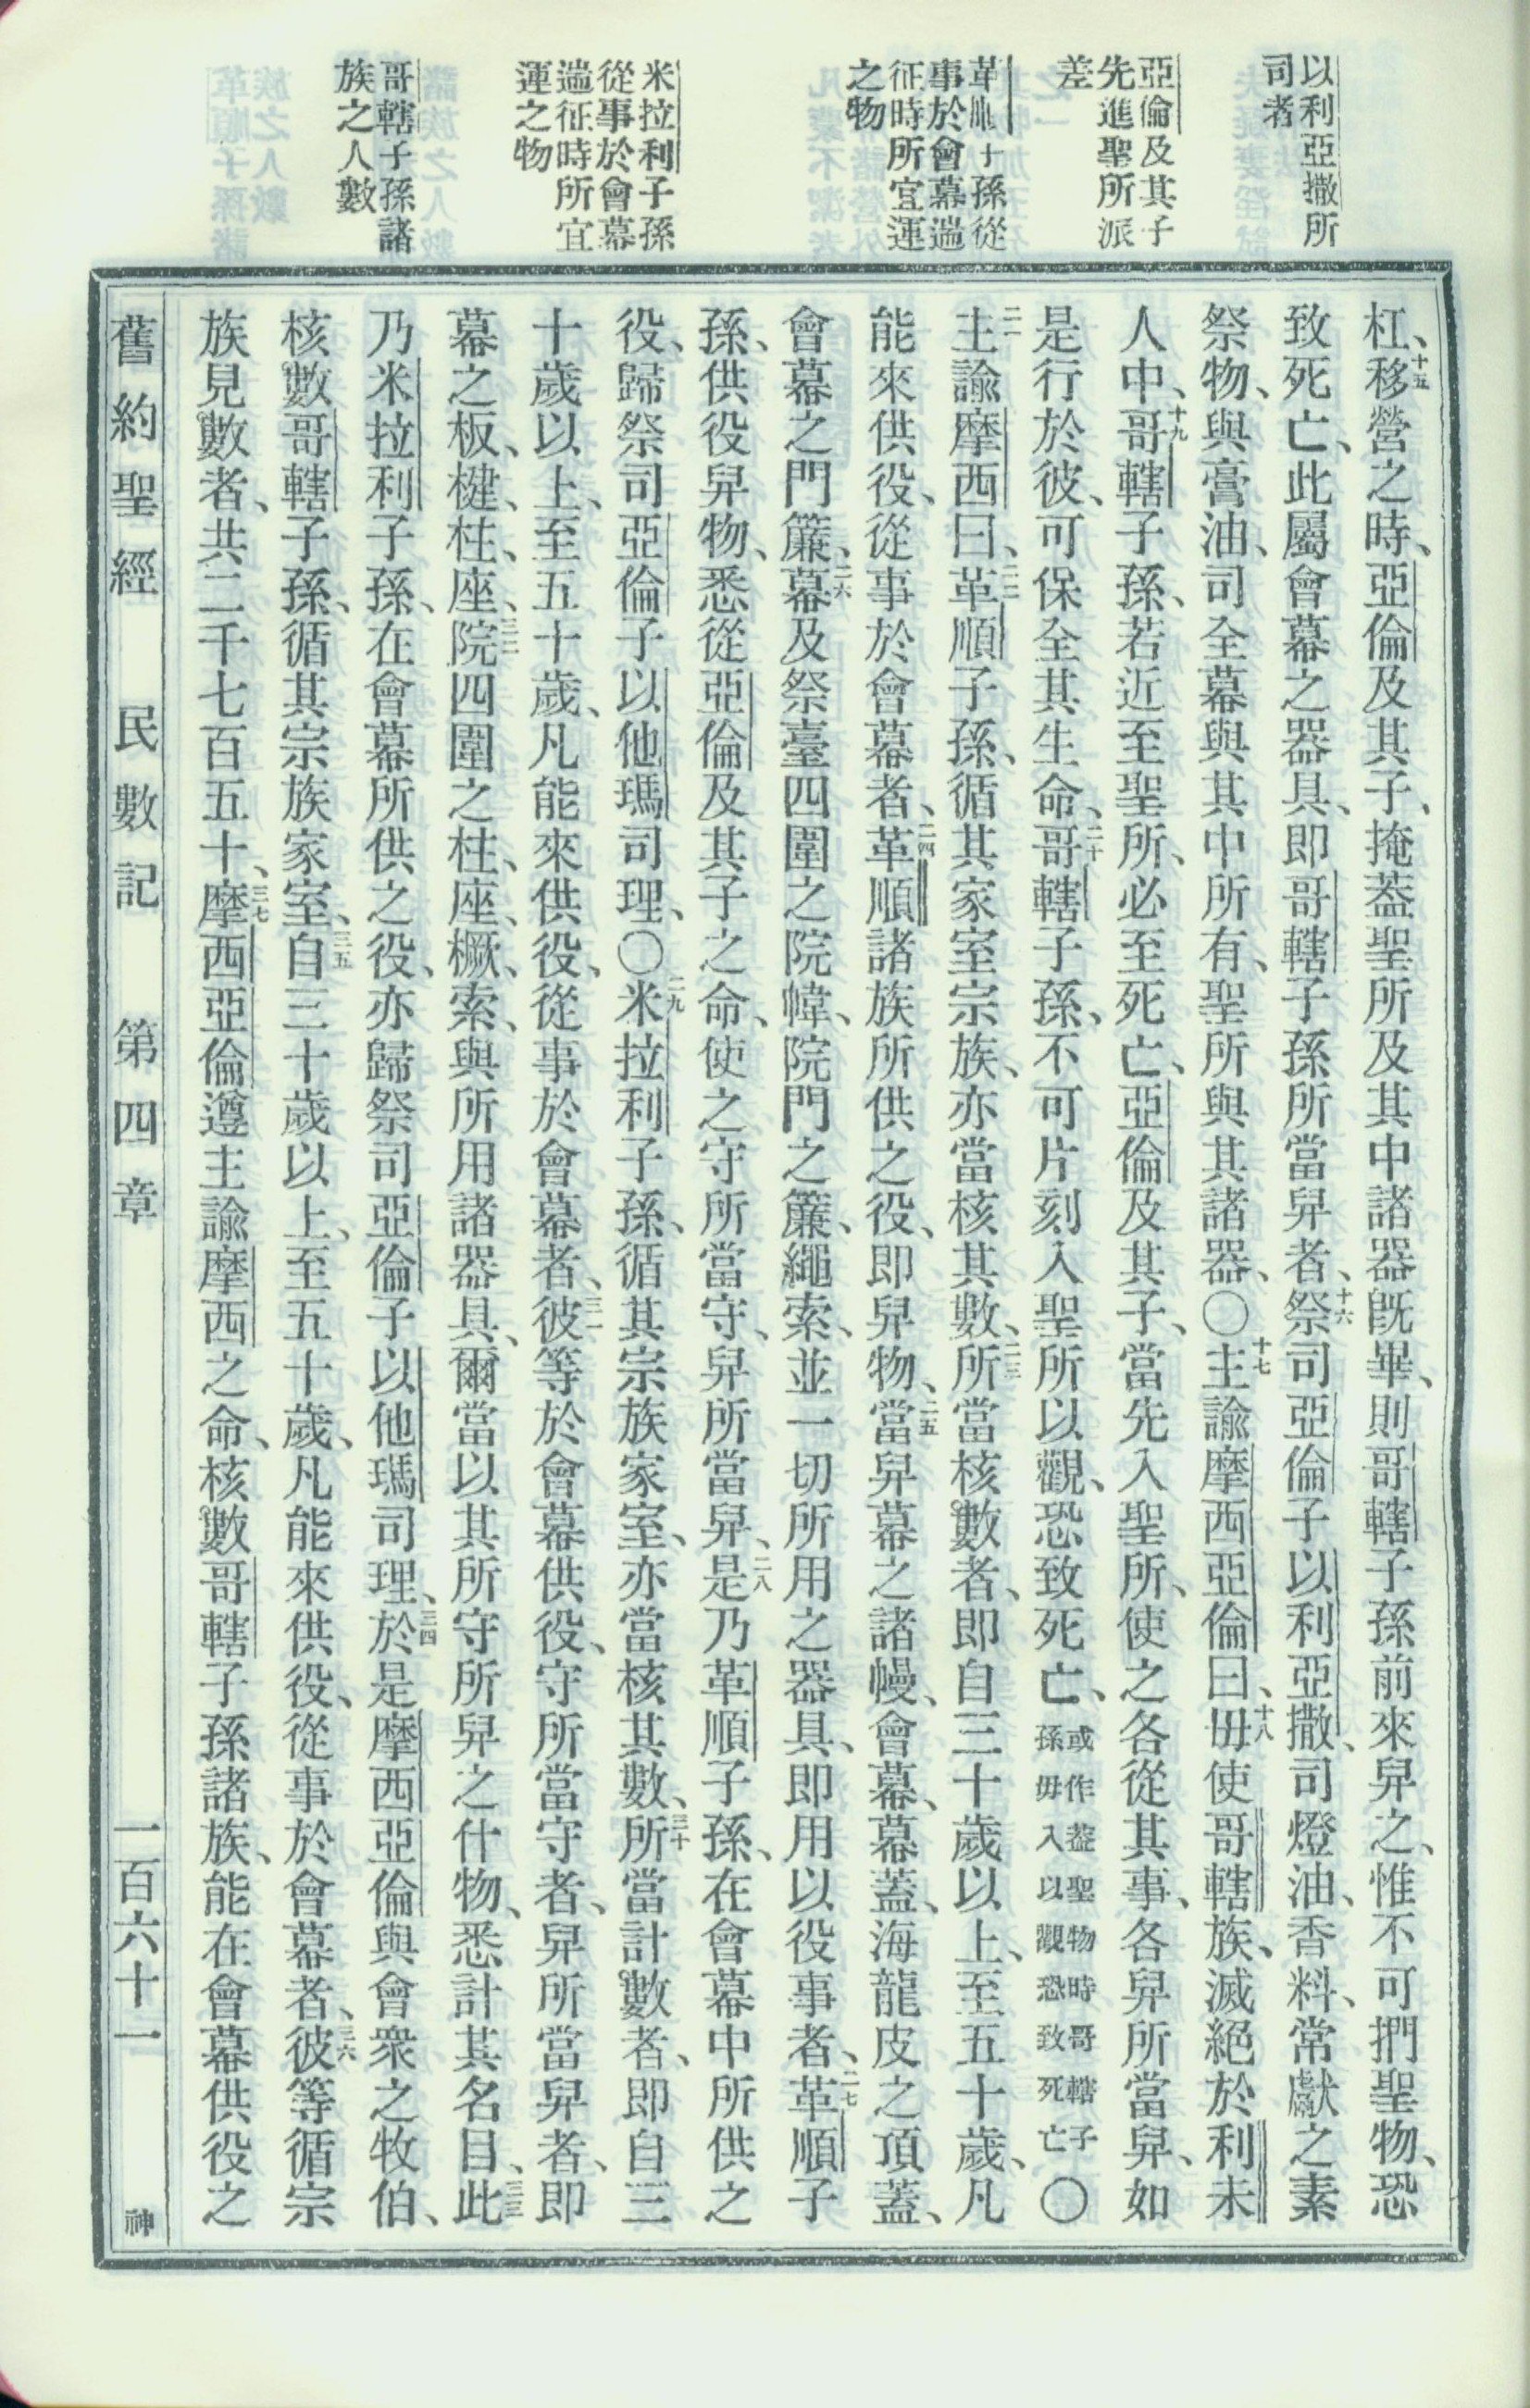 以利亞撒所
司者
亞倫及其子
先進聖所派
差
革順子孫從
事於會幕遄
征時所宜運
之物
米拉利子孫
從事於會幕
遄征時所宜
運之物
哥轄子孫諸
族之人數
杠、十五移營之時、亞倫及其子、掩蓋聖所及其中諸器旣畢、則哥轄子孫前來舁之、惟不可捫聖物、恐
致死亡、此屬會幕之器具、卽哥轄子孫所當舁者、十六祭司亞倫子以利亞撒、司燈油、香料、常獻之素
祭物、與膏油、司全幕與其中所有、聖所與其諸器、〇十七主諭摩西亞倫曰、十八毋使哥轄族、滅絕於利未
人中、十九哥轄子孫、若近至聖所、必至死亡、亞倫及其子、當先入聖所、使之各從其事、各舁所當舁、如
是行於彼、可保全其生命、二十哥轄子孫、不可片刻入聖所以觀、恐致死亡、或作蓋聖物時哥轄子孫毋入以觀恐致死亡〇
二一主諭摩西曰、二二革順子孫、循其家室宗族、亦當核其數、二三所當核數者、卽自三十歲以上、至五十歲、凡
能來供役、從事於會幕者、二四革順諸族所供之役、卽舁物、二五當舁幕之諸幔、會幕、幕蓋、海龍皮之頂蓋、
會幕之門簾、二六幕及祭臺四圍之院幃、院門之簾、繩索、並一切所用之器具、卽用以役事者、二七革順子
孫、供役舁物、悉從亞倫及其子之命、使之守所當守、舁所當舁、二八是乃革順子孫、在會幕中所供之
役、歸祭司亞倫子以他瑪司理、〇二九米拉利子孫、循其宗族家室、亦當核其數、三十所當計數者、卽自三
十歲以上、至五十歲、凡能來供役、從事於會幕者、三一彼等於會幕供役、守所當守者、舁所當舁者、卽
幕之板、楗、柱、座、三二院四圍之柱、座、橛、索、與所用諸器具、爾當以其所守所舁之什物、悉計其名目、三三此
乃米拉利子孫、在會幕所供之役、亦歸祭司亞倫子以他瑪司理、三四於是摩西亞倫與會衆之牧伯、
核數哥轄子孫、循其宗族家室、三五自三十歲以上、至五十歲、凡能來供役、從事於會幕者、三六彼等循宗
族見數者、共二千七百五十、三七摩西亞倫遵主諭摩西之命、核數哥轄子孫諸族、能在會幕供役之
舊約聖經　民數記　第四章　一百六十一　神